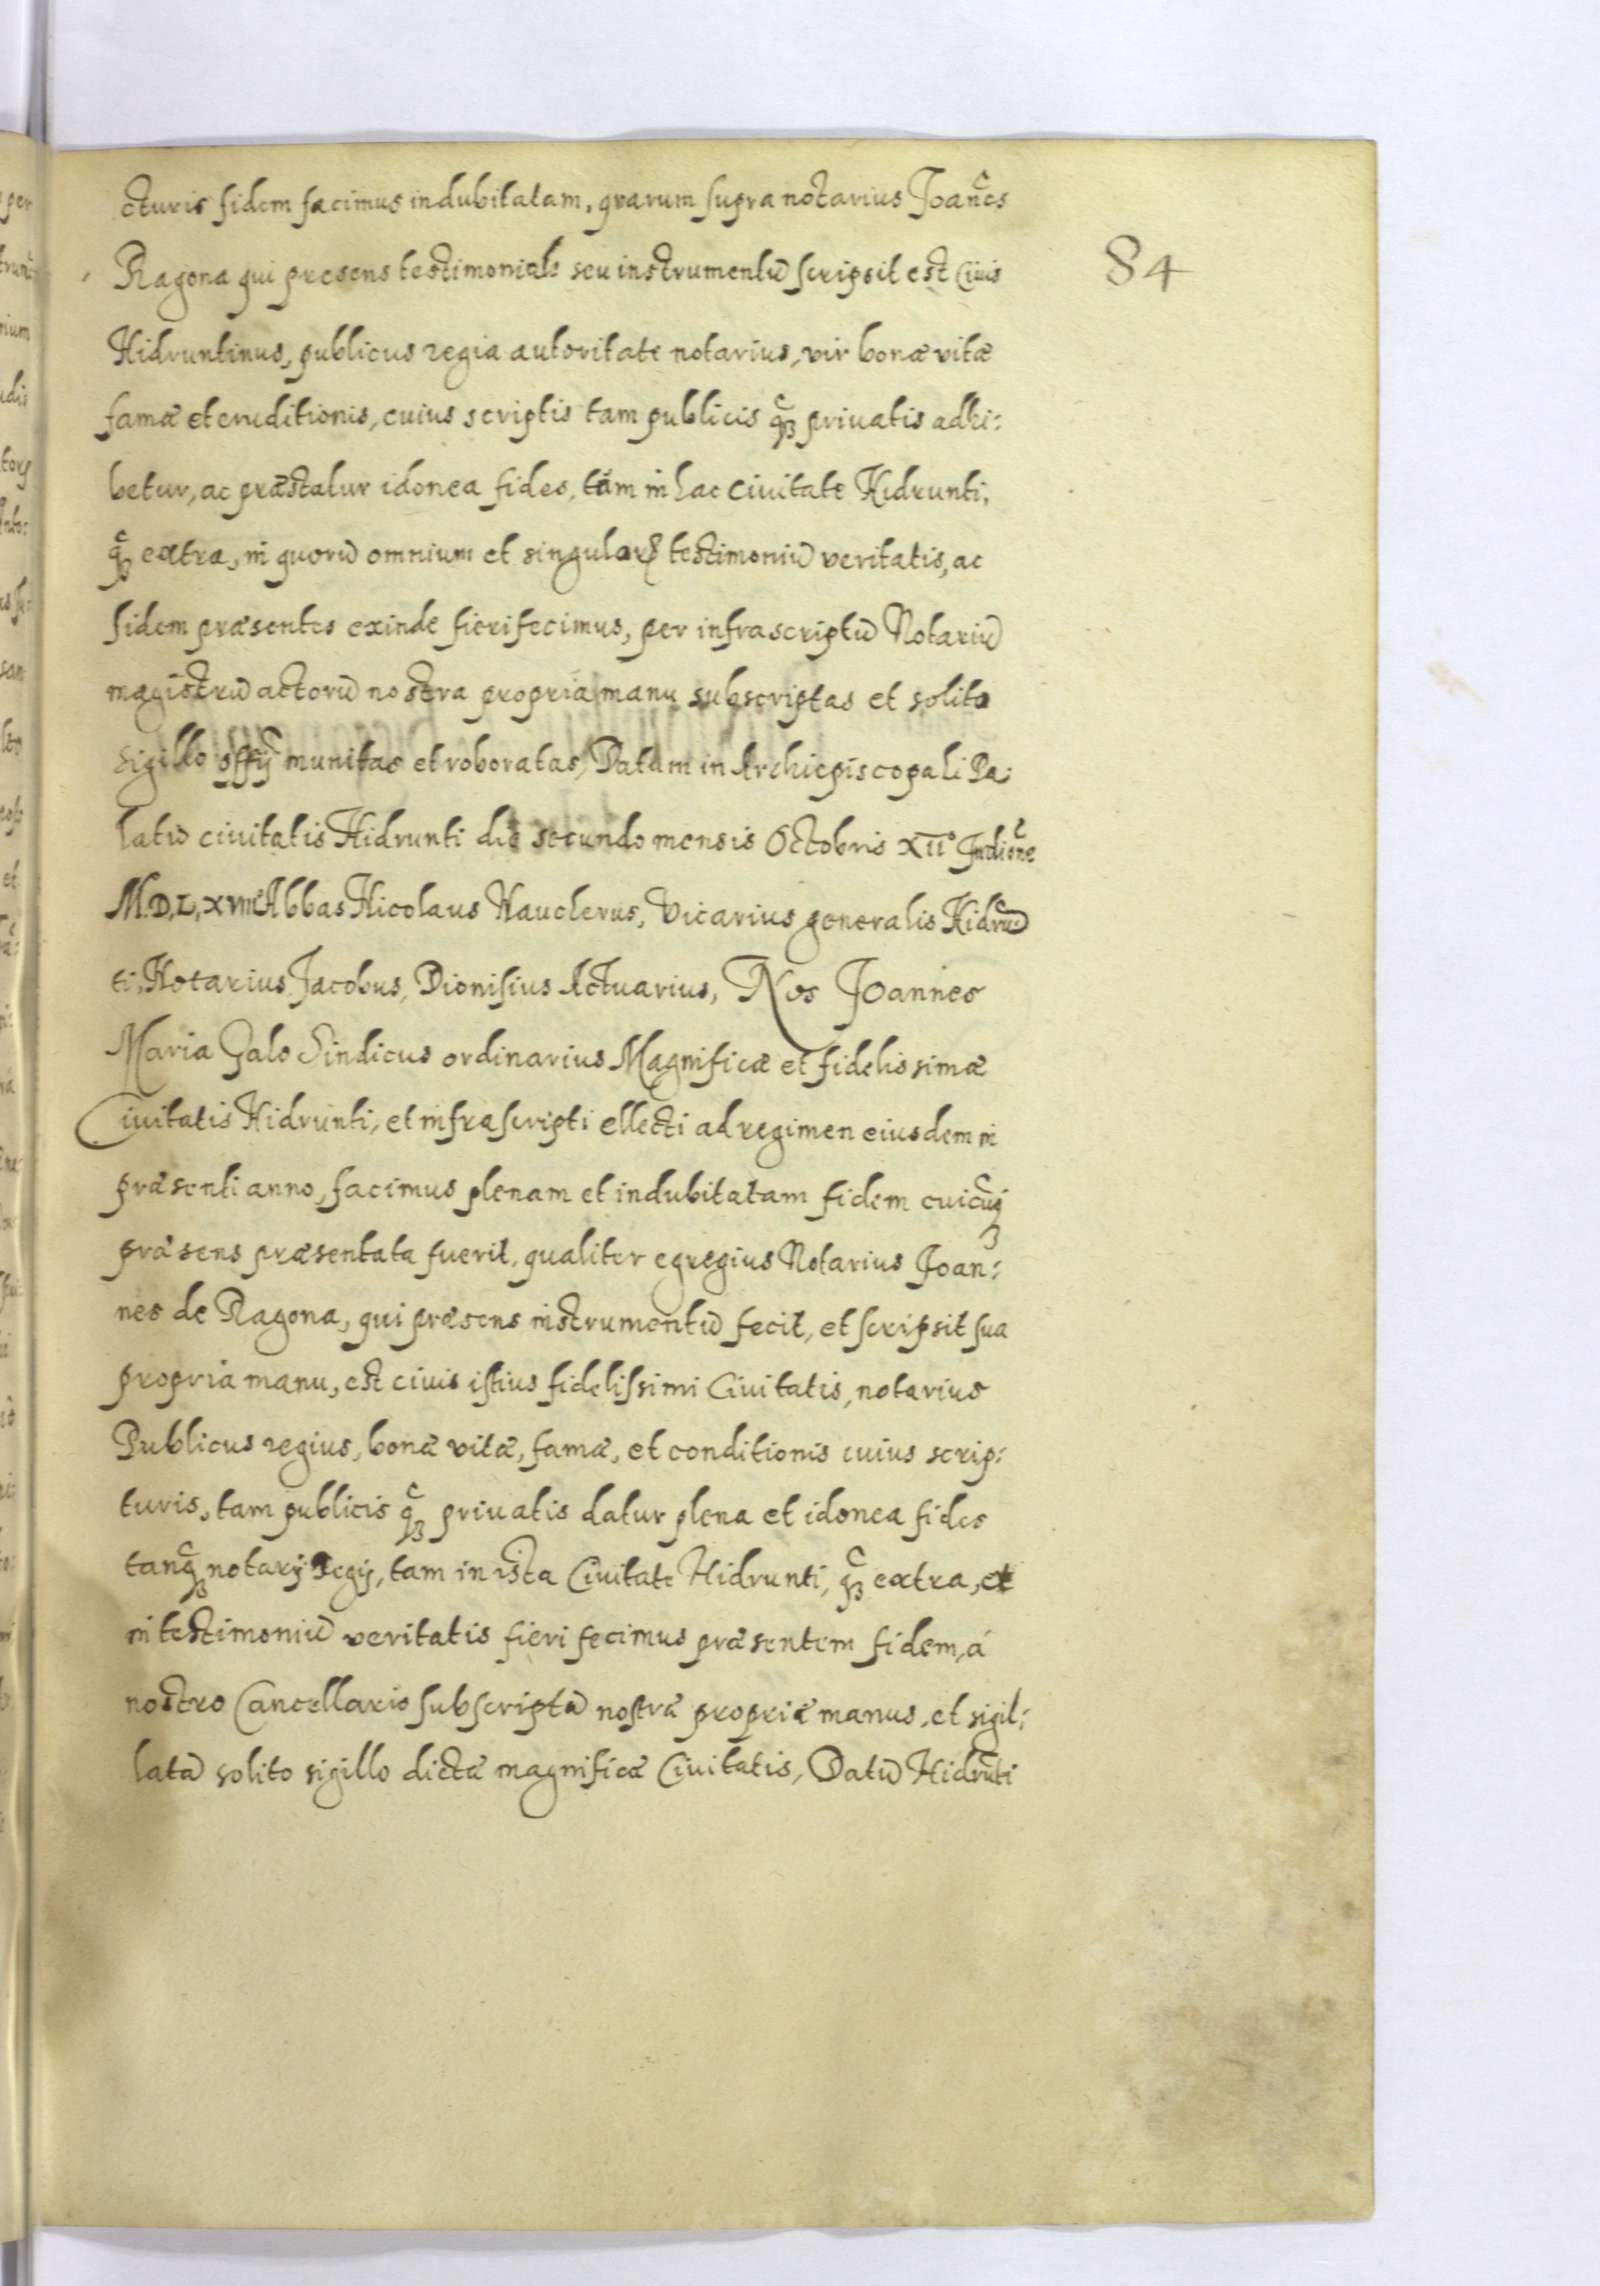 cturis fidem facimus indubitatam, qrarum supra notarius Joan̄es
84
Ragona qui presens testimoniale seu instrumentū scripsit est Ciuis
Hidruntinus, publicus regia autoritate notarius, vir bonæ vitæ
famæ et eruditionis, cuius scriptis tam publicis q̃ȝ priuatis adhi:
betur, ac præstatur idonea fides, tam in hac Ciuitate Hidrunti,
q̃ȝ extra, in quorū omnium et singularꝝ testimoniū veritatis, ac
fidem præsentes exinde fieri fecimus, per infrascriptū Notariū
magistrū actorū nostra propria manu subscriptas et solito
sigillo offy̅ munitas et roboratas, Datam in Archiepiscopali Pa:
latio ciuitatis Hidrunti die secundo mensis Octobris XII° Indiōne
M.D,L,XVIII° Abbas Nicolaus Nauclerus, Vicarius generalis Hidrū
ti, Notarius Jacobus, Dionisius Actuarius, Nos Joannes
Maria Galo Sindicus ordinarius Magnificæ et fidelissimæ
Ciuitatis Hidrunti, et infrascripti ellecti ad regimen eiusdem in
præsenti anno, facimus plenam et indubitatam fidem cuicūqȝ
præsens præsentata fuerit, qualiter egregius Notarius Joan:
nes de Ragona, qui præsens instrumentū fecit, et scripsit sua
propria manu, est ciuis istius fidelissimi Ciuitatis, notarius
Publicus regius, bonæ vitæ, famæ, et conditionis cuius scrip:
turis, tam publicis q̃ȝ priuatis datur plena et idonea fides
tanq̃ȝ notarij Regij, tam in ista Ciuitate Hidrunti, q̃ȝ extra, et
in testimoniū veritatis fieri fecimus præsentem fidem, á
nostro Cancellario subscriptā nostræ propriæ manus, et sigil:
latā solito sigillo dictæ magnificæ Ciuitatis, Datū Hidrūti